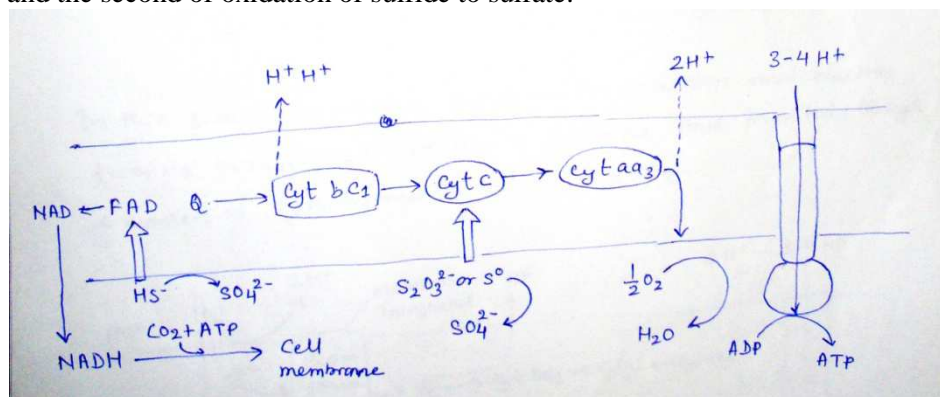 and the second of oxidation of sulfide to sulfate.
H+ H+
2H+
3-4 H+
NAD ← FAD Q → Cyt bc1 → Cyt c → Cyt aa3
HS- SO4 2-
S2O3 2- or S°
SO4 2-
1/2 O2
H2O
ADP ATP
CO2+ATP
NADH → Cell
membrane